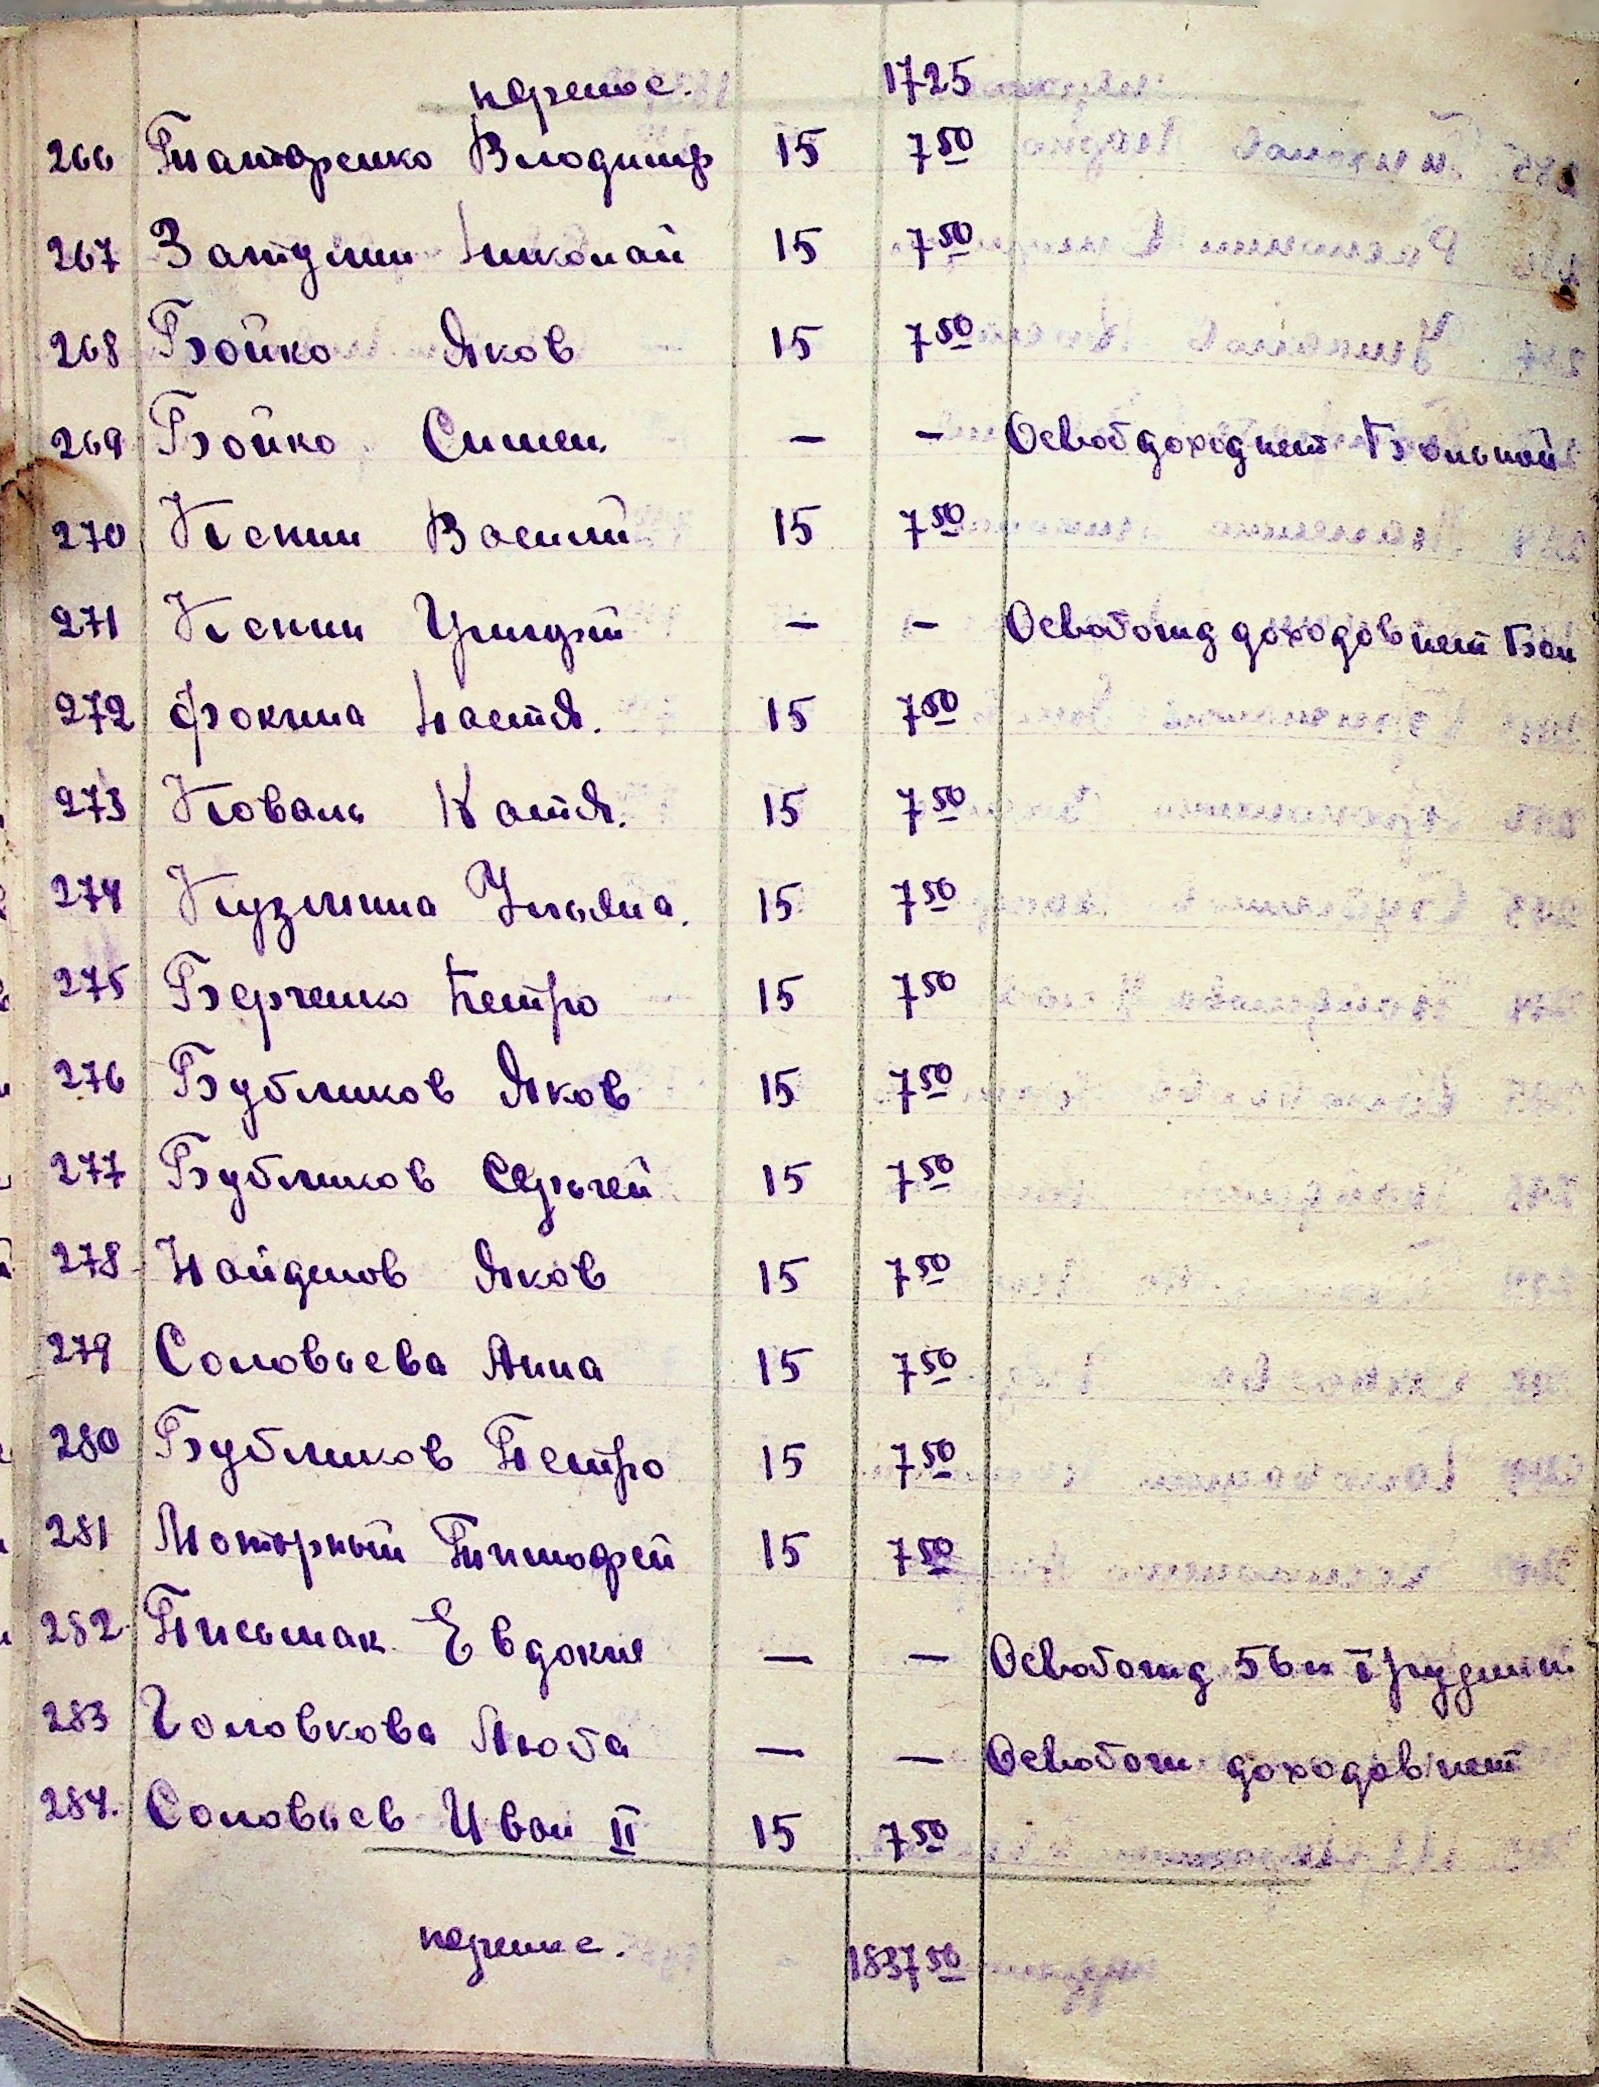 перенос. 1725
266 Титаренко Владимир 15 7 50
267 Затулин Николай 15 7 50
268 Бойко Яков 15 7 50
269 Бойко Симен. — — Освоб доход нет Больной
270 Кснин Василий 15 7 50
271 Кснин — — Освобожд доходов нет Бол
272 Фокина Настя. 15 7 50
273 Коваль Катя. 15 7 50
274 Кузмина Ульяна. 15 7 50
275 Берченко Петро 15 7 50
276 Бубликов Яков 15 7 50
277 Бубликов Сергей 15 7 50
278 Найденов Яков 15 7 50
279 Соловьева Анна 15 7 50
280 Бубликов Петро 15 7 50
281 Моторный Тимофей 15 7 50
282 Письмак Евдокия — — Освобожд
283 Головкова Люба — — Освобож доходов нет
284. Соловьев Иван II 15 7 50
перенос. 1837 50